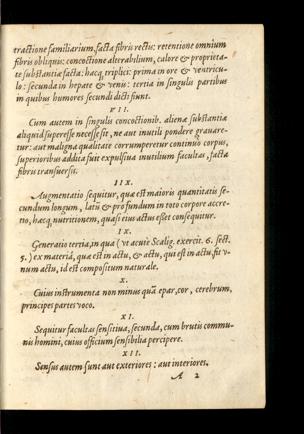 tractione familiarium, facta fibris rectis: retentione omnium
fibris obliquis: concoctione alterabilium, calore & proprieta-
te substantiæ facta: hacq; triplici: prima in ore & ventricu-
lo: secunda in hepate & venis: tertia in singulis partibus
in quibus humores secundi dicti fiunt.
VII.
Cum autem in singulis concoctionib. aliena substantia
aliquid superesse necesse sit, ne aut inutili pondere grauare-
tur: aut maligna qualitate corrumperetur continuo corpus,
superioribus addita fuit expulsiua inutilium facultas, facta
fibris transuersis.
IIX.
Augmentatio sequitur, quæ est maioris quantitatis se-
cundum longum, latū & profundum in toto corpore accre-
tio, hacq; nutritionem, quasi eius actus esset consequitur.
IX.
Generatio tertia, in qua (vt acuie Scalig. exercit. 6. sect.
5.) ex materiâ, quæ est in actu, & actu, qui est in actu, fit v-
num actu, id est compositum naturale.
X.
Cuius instrumenta non minus quā epar, cor, cerebrum,
principes partes voco.
XI.
Sequitur facultas sensitiua, secunda, cum brutis commu-
nis homini, cuius officium sensibilia percipere.
XII.
Sensus autem sunt aut exteriores: aut interiores.
A 2